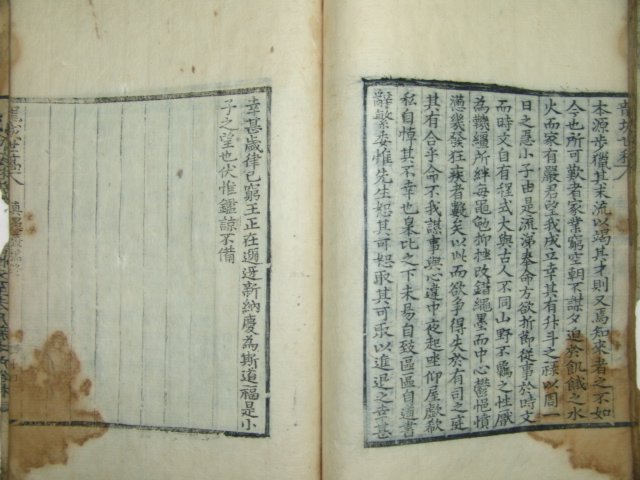 本源步獵其末流以竭其才則又焉知來者之不如
今也所可歎者家業窮空朝不謀夕迫於飢餓之水
火而家有嚴君望我成立幸其有升斗之祿以周一
日之急小子由是流涕奉命方欲折節從事於時文
而時文自有程式大與古人不同山野不羈之性厭
為韉繮所絆每黽勉抑極改錯繩墨而中心鬱悒憤
懣幾發狂疾者數矣以此而欲爭得失於有司之廷
其有合乎命不我謀事與心違中夜起坐仰屋歔欷
私自悼其不幸也來比之下未易自致區區自道書
辭繁委惟先生恕其可恕取其可取以進退之幸甚
幸甚歲律已窮王正在邇迓新納慶為斯道福是小
子之望也伏惟鑑諒不備